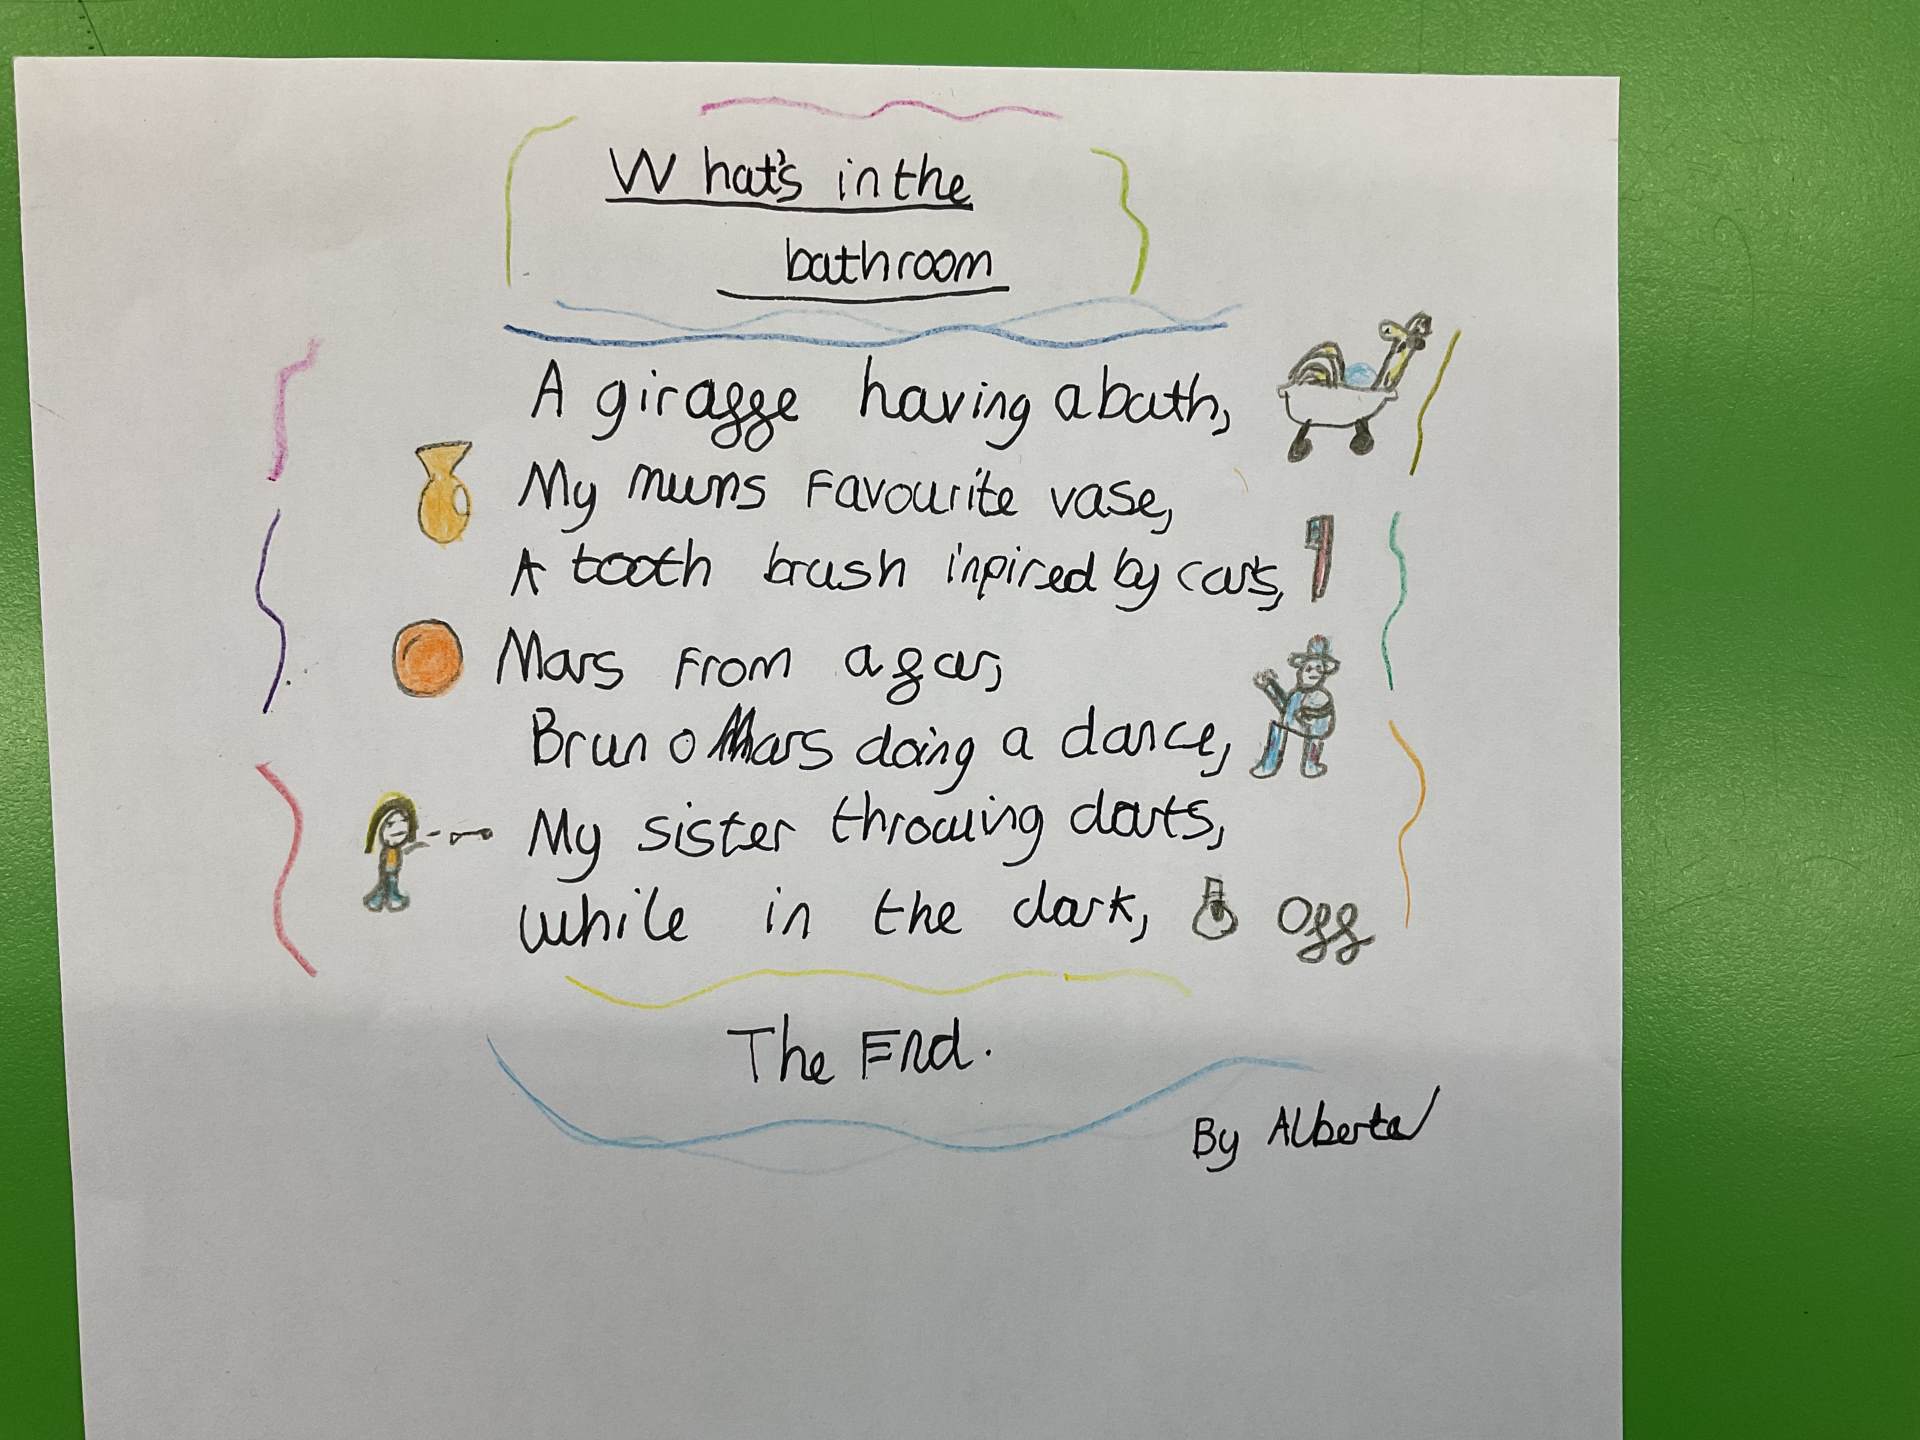 What's in the
bathroom
A giraffe having a bath,
My mums Favourite vase,
A tooth brush inpired by cars,
Mars From afar,
Bruno Mars doing a dance,
My sister throwing darts,
while in the dark,
Off
The End.
By Alberta